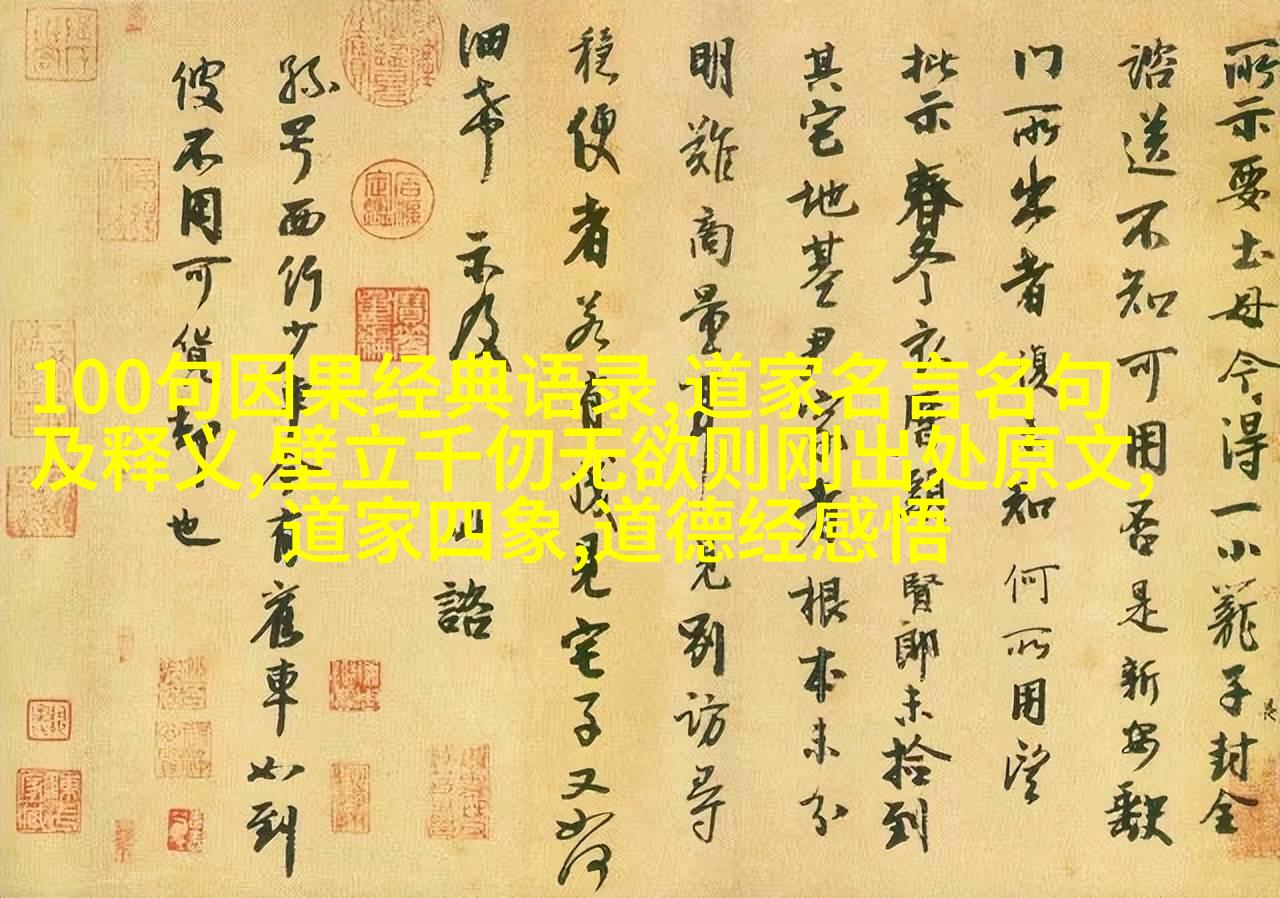 100句因果经典语录,道家名言名句
及释义,壁立千仞无欲则刚出处原文,
道家四象,道德经感悟
所示要土母今得一小籠子封全
諮送不知可用否是新安
门所出者復知何所用望
批示春冬衣賢郎未拾到
其宅地基尹家者根本未分
明難商量見別訪尋
穩便者若有成見宅子又如何
細希示及諮
孫号西行少車今有舊車如到
彼不用可貨却也